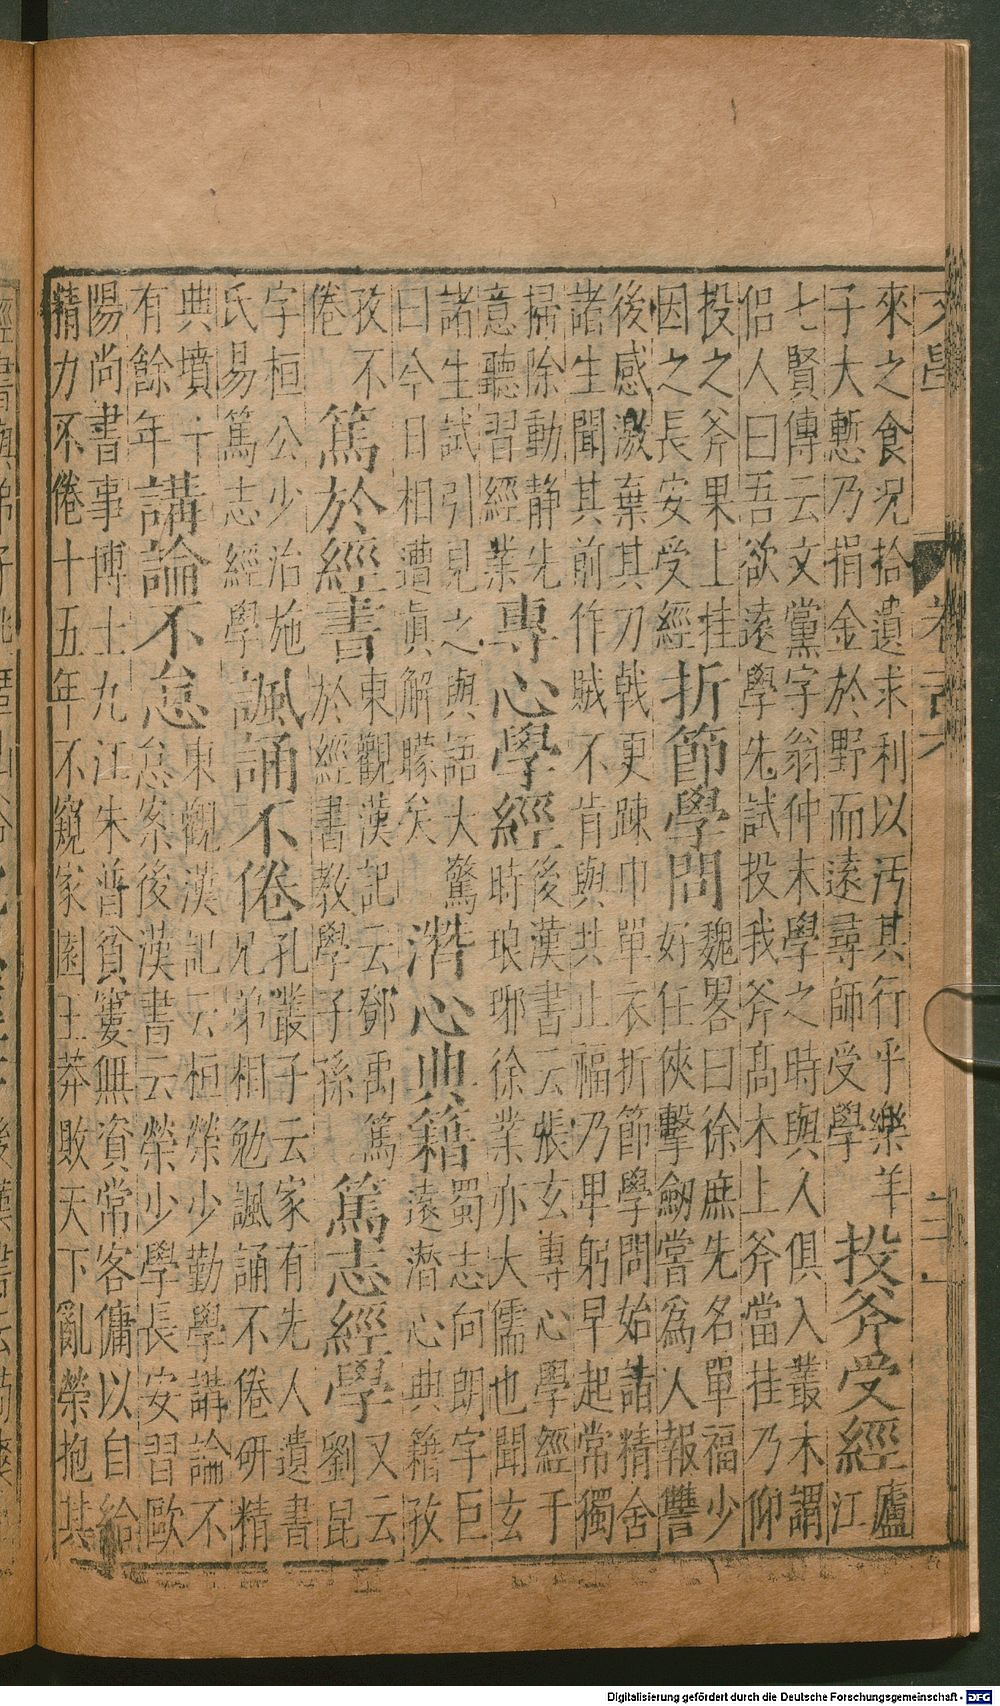 來之食況拾遺求利以汚其行乎樂羊
子大慙乃捐金於野而遠尋師受學
投斧受經
廬
江
七賢傳云文黨字翁仲未學之時與人俱入叢木謂
侶人曰吾欲遠學先試投我斧髙木上斧當挂乃仰
投之斧果上挂
因之長安受經
折節學問
魏畧曰徐庶先名單福少
好任俠擊劒嘗爲人報讐
後感激棄其刀戟更踈巾單衣折節學問始詣精舍
諸生聞其前作賊不肯與共止福乃卑躬早起常獨
掃除動静先
意聽習經業
專心學經
後漢書云張玄專心學經于
時琅邪徐業亦大儒也聞玄
諸生試引見之與語大驚
曰今日相遭眞解矇矣
潛心典籍
蜀志向朗字巨
遠潛心典籍孜
孜不
倦
篤於經書
東觀漢記云鄧禹篤
於經書教學子孫
篤志經學
又云
劉昆
字桓公少治施
氏易篤志經學
諷誦不倦
孔叢子云家有先人遺書
兄弟相勉諷誦不倦研精
典墳十
有餘年
講論不怠
東觀漢記云桓榮少勤學講論不
怠案後漢書云榮少學長安習歐
陽尚書事博士九江朱普貧窶無資常客傭以自給
精力不倦十五年不窺家園王莽敗天下亂榮抱其
Digitalisierung gefördert durch die Deutsche Forschungsgemeinschaft - DFG